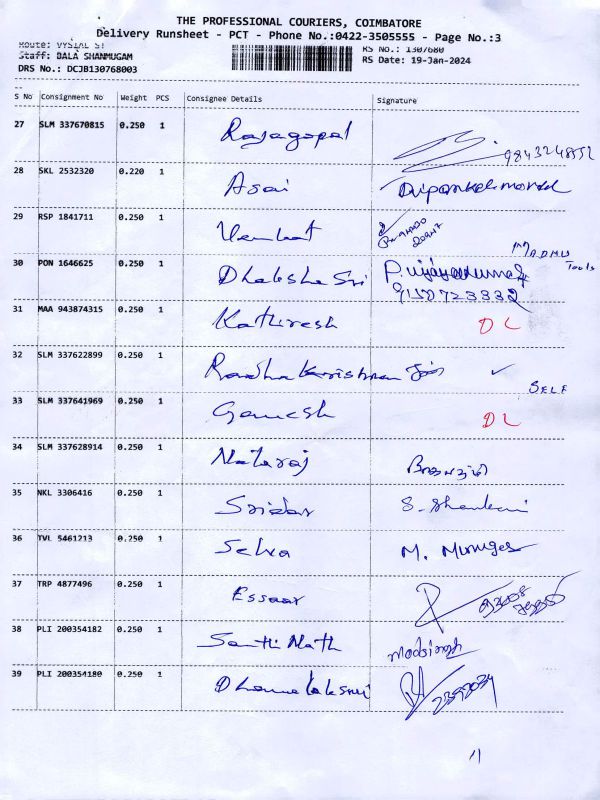 THE PROFESSIONAL COURIERS, COIMBATORE
Delivery Runsheet - PCT - Phone No.:0422-3505555 - Page No.:3
Route: VYSIAL ST
Staff: BALA SHANMUGAM
DRS No.: DCJB130768003
RS No.: 1307680
RS Date: 19-Jan-2024
S No Consignment No Weight PCS Consignee Details Signature
27 SLM 337670815 0.250 1 Rajagopal
28 SKL 2532320 0.220 1 Asai
29 RSP 1841711 0.250 1 Venkat
MADHU
Tools
30 PON 1646625 0.250 1 P. Vijayakumar
31 MAA 943874315 0.250 1 Kathiresh DL
32 SLM 337622899 0.250 1 Radha Krishnan ✓
SELF
33 SLM 337641969 0.250 1 Ganesh DL
34 SLM 337628914 0.250 1 Nataraj
35 NKL 3306416 0.250 1 Sridar S.
36 TVL 5461213 0.250 1 Selva M. Muruges
37 TRP 4877496 0.250 1 Essaar
38 PLI 200354182 0.250 1 Santhi Nath
39 PLI 200354180 0.250 1